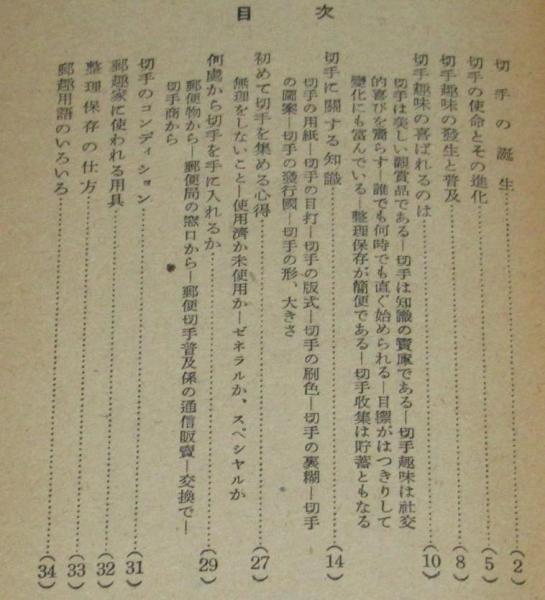 目次
切手の誕生……………(2)
切手の使命とその進化……………(5)
切手趣味の發生と普及……………(8)
切手趣味の喜ばれるのは……………(10)
切手は美しい觀賞品である―切手は知識の寶庫である―切手趣味は社交
的喜びを齎らす―誰でも何時でも直ぐ始められる―目標がはつきりして
變化にも富んでいる―整理保存が簡便である―切手收集は貯蓄ともなる
切手に關する知識……………(14)
切手の用紙―切手の目打―切手の版式―切手の刷色―切手の裏糊―切手
の圖案―切手の發行國―切手の形、大きさ
初めて切手を集める心得……………(27)
無理をしないこと―使用濟か未使用か―ゼネラルか、スペシャルか
何處から切手を手に入れるか……………(29)
郵便物から―郵便局の窓口から―郵便切手普及係の通信販賣―交換で―
切手商から
切手のコンディション……………(31)
郵趣家に使われる用具……………(32)
整理保存の仕方……………(33)
郵趣用語のいろいろ……………(34)